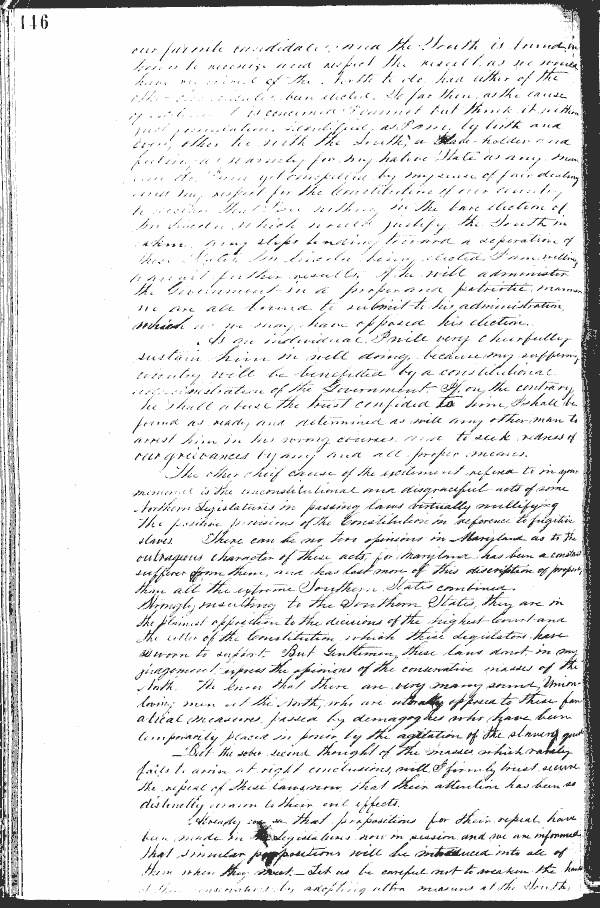 146
our favorite candidates, and the South is bound in
honor to recognize and respect the result, as we would
have required of the North to do, had either of the
other candidates been elected. So far then, as the cause
of is concerned I cannot but think it without
just foundation. Identified, as I am, by birth and
every other tie with the South, a slave-holder and
feeling as warmly for my native State as any man
can do, I am yet compelled by my sense of fair dealing
and my respect for the Constitution of our country
to declare that I see nothing in the bare election of
Mr Lincoln which would justify the South in
taking any steps tending toward a seperation of
these States. Mr Lincoln being elected, I am willing
to await further results. If he will administer
the Government in a proper and patriotic manner
we are all bound to submit to his administration
much as we may have opposed his election.
As an individual, I will very cheerfully
sustain him in well doing, because my suffering
country will be benefited by a constitutional
administration of the Government. If, on the contrary,
he shall abuse the trust confided to him, I shall be
found as ready and determined as will any other man to
arrest him in his wrong courses, and to seek redress of
our grievances by any and all proper means.
The other chief cause of the excitement refered to in your
memorial is the unconstitutional and disgraceful acts of some
Northern Legislatures in passing laws virtually nullifying
the positive provisions of the Constitution in reference to fugitive
slaves. There can be no two opinions in Maryland as to the
outrageous character of these acts, for Maryland has been a constant
sufferer from them, and has lost more of this description of property
than all the extreme Southern States combined.
Wrongly insulting to the Southern States, they are in
the plainest opposition to the decisions of the highest Court and
the letter of the Constitution which these legislators have
sworn to support. But Gentlemen, these laws do not in my
judgement, express the opinions of the conservative masses of the
North. We know that there are very many sound, Union-
loving men at the North, who are utterly opposed to these fan-
atical measures, passed by demagogues who have been
temporarily placed in power by the agitation of the slavery quest
— But the sober second thought of the masses which rarely
fails to arrive at right conclusions, will I firmly trust secure
the repeal of these laws now, that their attention has been so
distinctly drawn to their evil effects.
Already we see that propositions for their repeal, have
been made in the Legislatures now in session and we are informed
that similar propositions will be introduced into all of
them when they meet. — Let us be careful not to weaken the hands
of these conservatives by adopting ultra measures at the South,